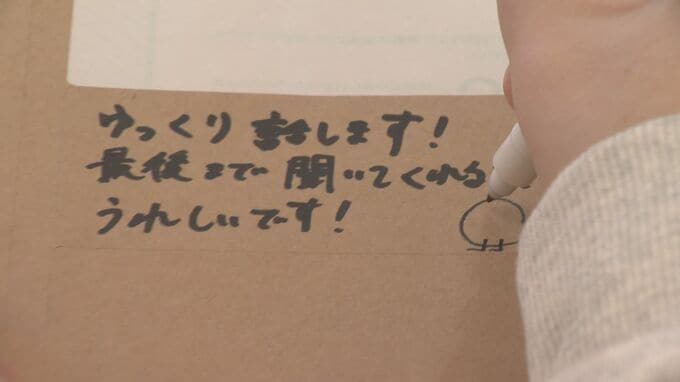 ゆっくり話します!
最後まで聞いてくれる
うれしいです!